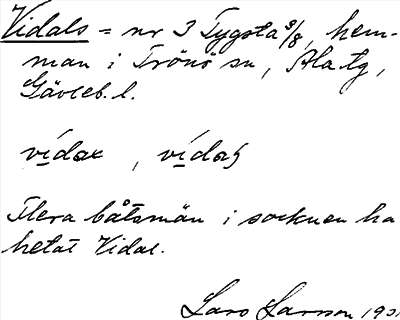 Vidals = nr 3 Tygsta 3/8, hem-
man i Trönö sn, Ala tg,
Gävleb. l.
vídar, vídaʂ
Flera båtsmän i socknen ha
hetat Vidar.
Lars Larsson 19